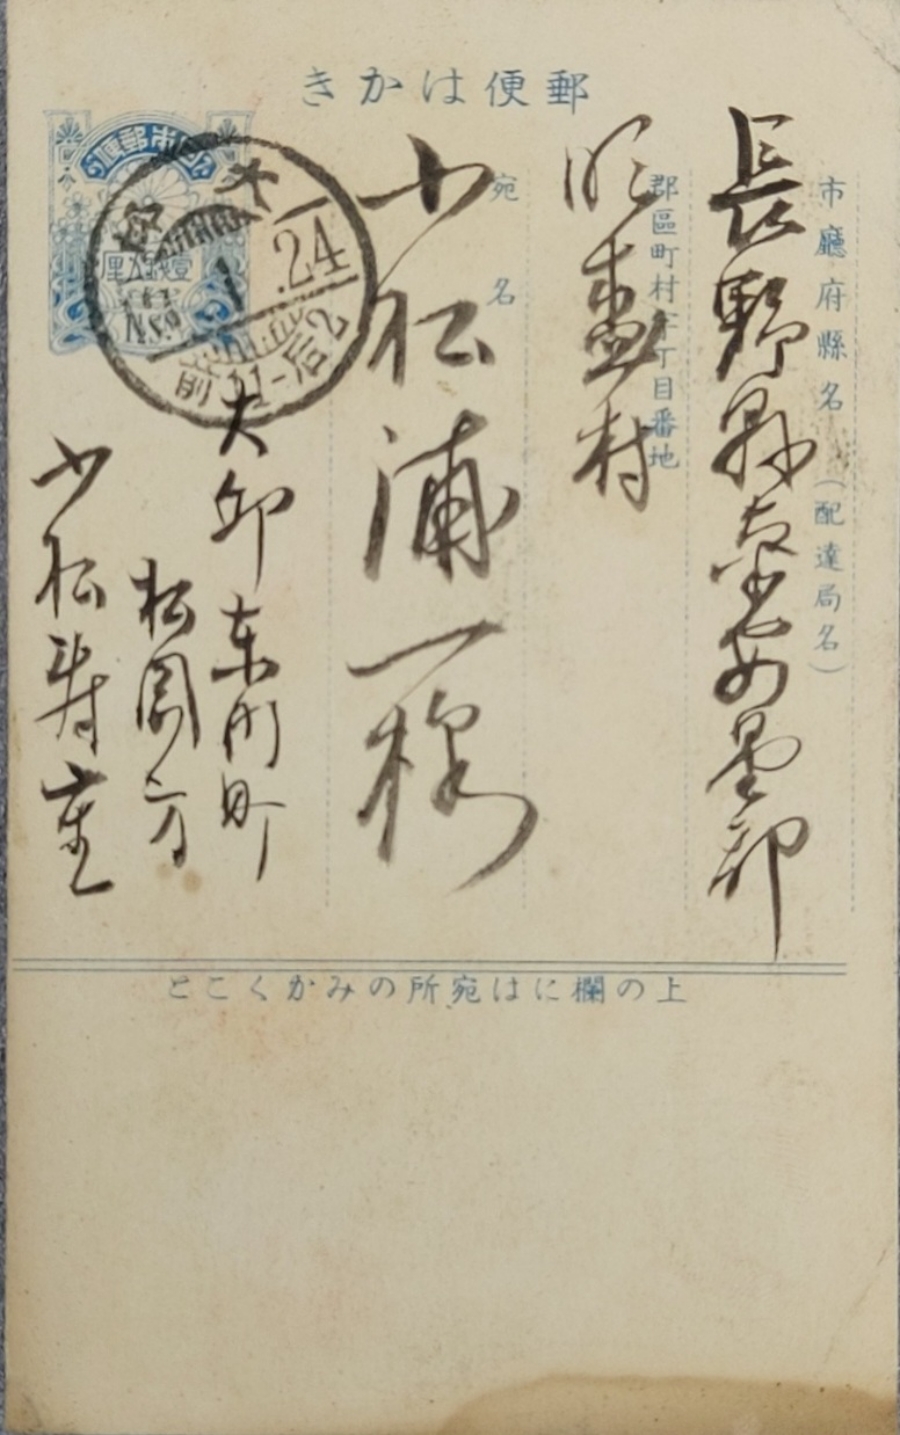 郵便はかき
市廳府縣名（配達局名）
長野縣南安曇郡
郡區町村字丁目番地
明盛村
宛名
小松浦一様
大町
東町
松園方
小松寿重
大
1.24
前11-后2
壹錢五厘
上の欄には宛所のみかくこと